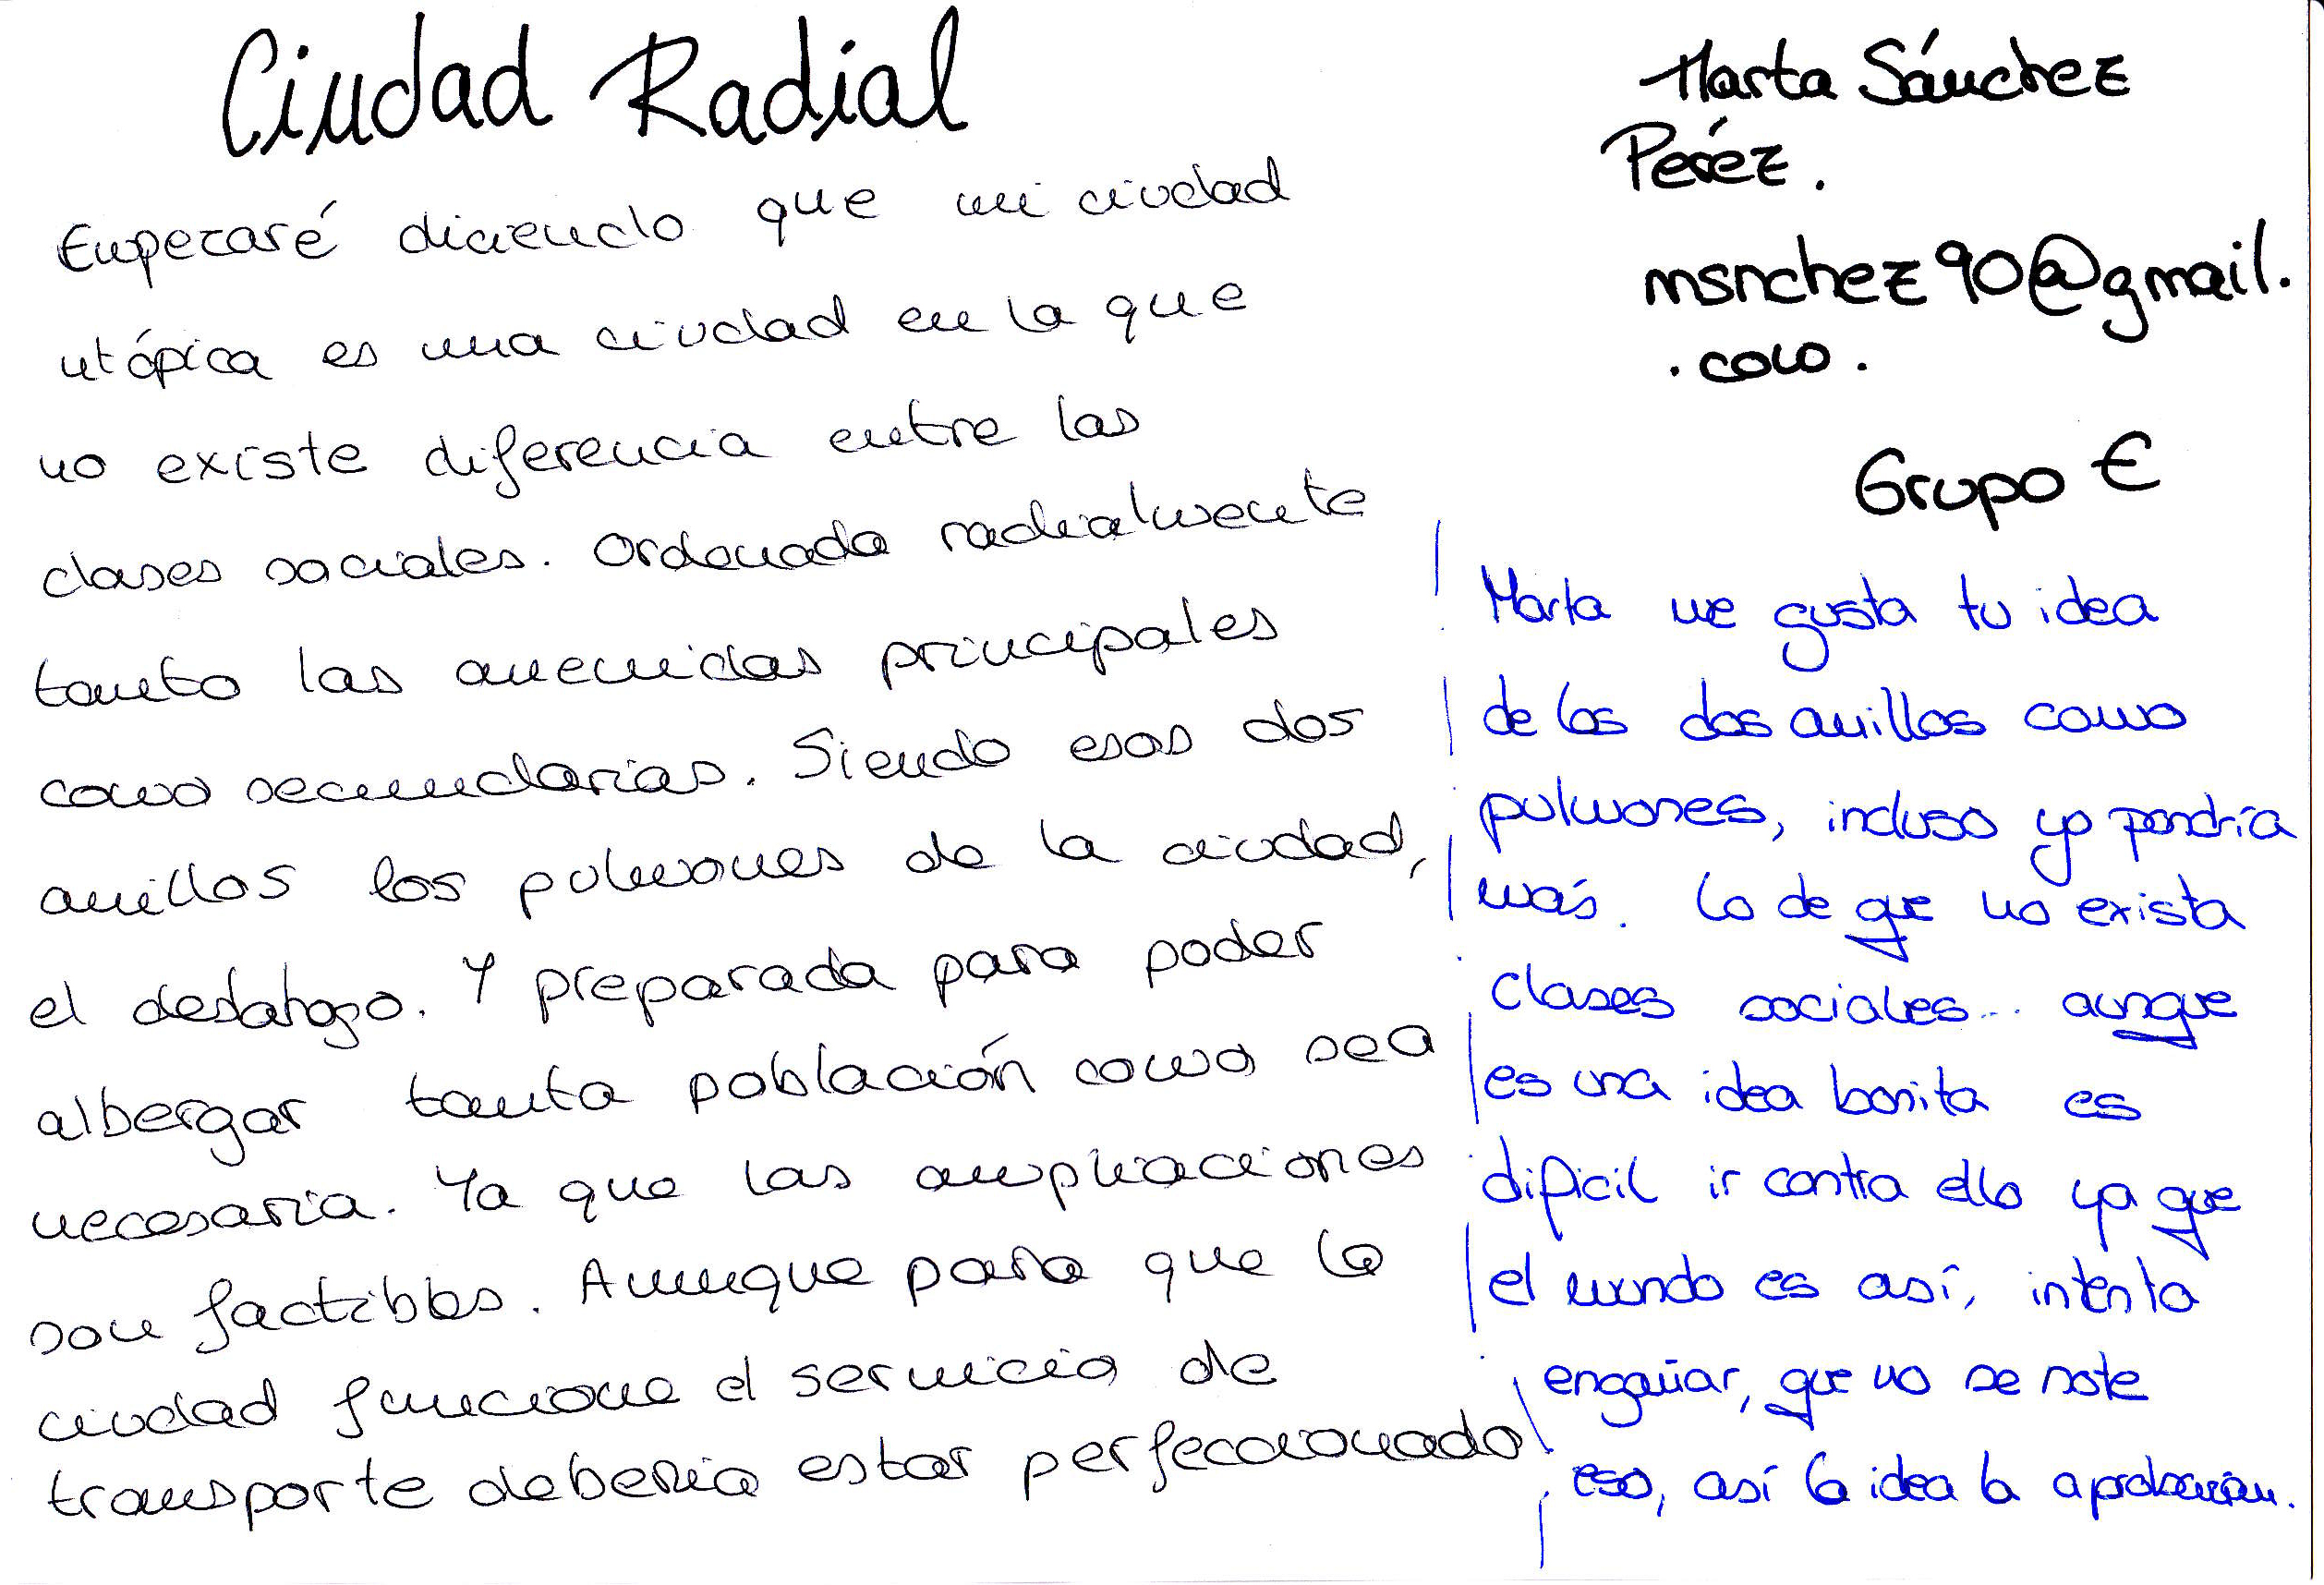 Ciudad Radial
Empezaré diciendo que mi ciudad
utópica es una ciudad en la que
no existe diferencia entre las
clases sociales. Ordenada radialmente
tanto las avenidas principales
como secundarias. Siendo esos dos
anillos los pulmones de la ciudad,
el desahogo. Y preparada para poder
albergar tanta población como sea
necesaria. Ya que las ampliaciones
son factibles. Aunque para que la
ciudad funcione el servicio de
transporte debería estar perfeccionado
Marta Sánchez
Peréz.
msnchez90@gmail.
.com.
Grupo E
Marta me gusta tu idea
de los dos anillos como
pulmones, incluso yo pondría
más. Lo de que no exista
clases sociales... aunque
es una idea bonita es
dificil ir contra ello ya que
el mundo es así, intenta
engañar, que no se note
eso, así la idea la aprobarían.